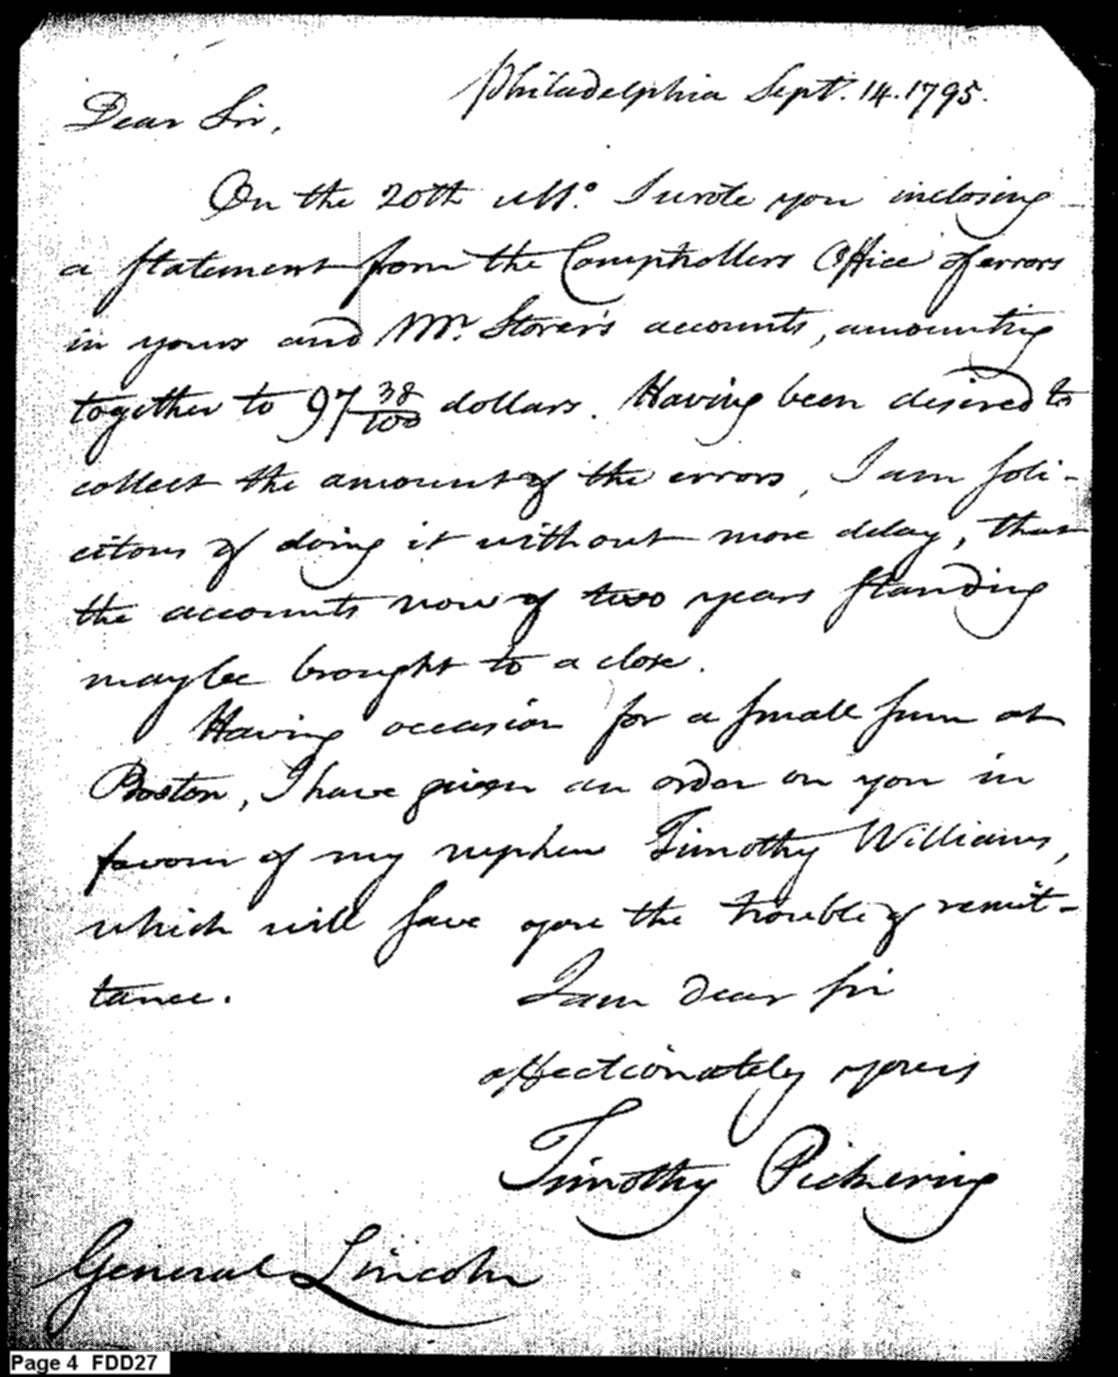 Philadelphia Sept. 14. 1795.
Dear Sir,
On the 20th ulto. I wrote you inclosing
a statement from the Comptrollers Office of errors
in yours and Mr. Storer's accounts, amounting
together to 97 38/100 dollars. Having been desired to
collect the amount of the errors, I am soli-
citous of doing it without more delay, that
the accounts now of two years standing
may be brought to a close.
Having occasion for a small sum at
Boston, I have given an order on you in
favour of my nephew Timothy Williams,
which will save you the trouble of remit-
tance.
I am dear sir
affectionately yours
Timothy Pickering
General Lincoln
Page 4 FDD27